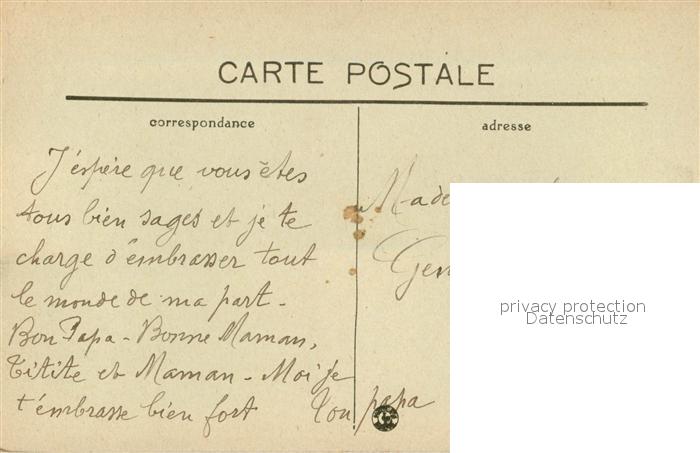 CARTE POSTALE
correspondance
adresse
J'espère que vous êtes
tous bien sages et je te
charge d'embrasser tout
le monde de ma part -
Bon Papa - Bonne Maman,
Titite et Maman - Moi je
t'embrasse bien fort Ton papa
privacy protection
Datenschutz